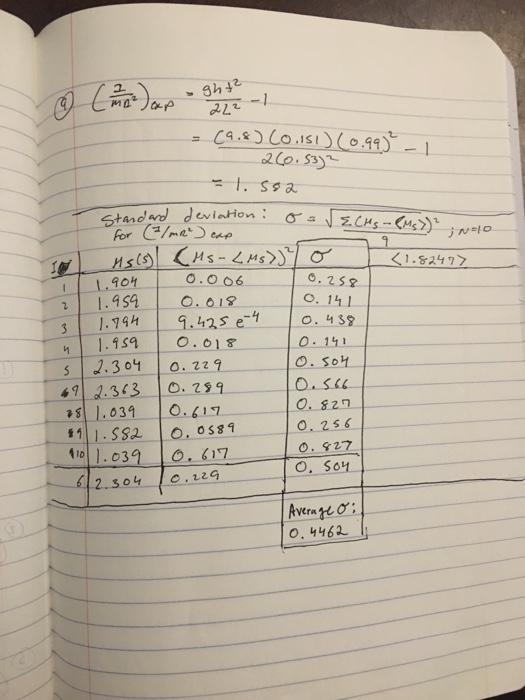 ⑨ (I/mR²)exp = ght²/2L² - 1
= (9.8)(0.151)(0.99)²/2(0.53)² - 1
= 1.582
Standard deviation: σ = √Σ(Ms-⟨Ms⟩)²/9 ; N=10
For (I/mR²) exp
Ms(s) (Ms-⟨Ms⟩)² σ <1.8247>
1 1.904 0.006 0.258
2 1.959 0.018 0.141
3 1.794 9.425 e⁻⁴ 0.438
4 1.959 0.018 0.141
5 2.304 0.229 0.504
7 2.363 0.289 0.566
8 1.039 0.617 0.827
9 1.582 0.0589 0.256
10 1.039 0.617 0.827
6 2.304 0.229 0.504
Average σ:
0.4462